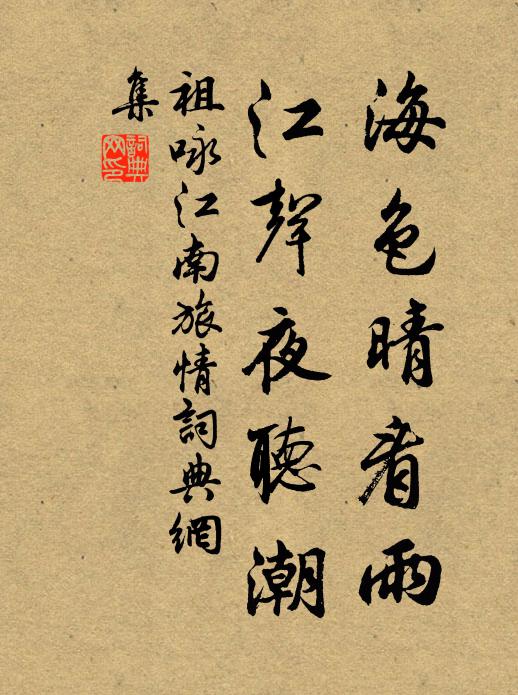 海色晴看雨
江聲夜聽潮
祖咏江南旅情詞典網
集
詞典網印